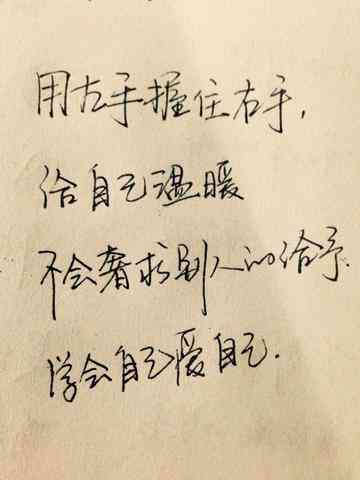 用左手握住右手,
给自己温暖
不会奢求别人的给予.
学会自己爱自己.